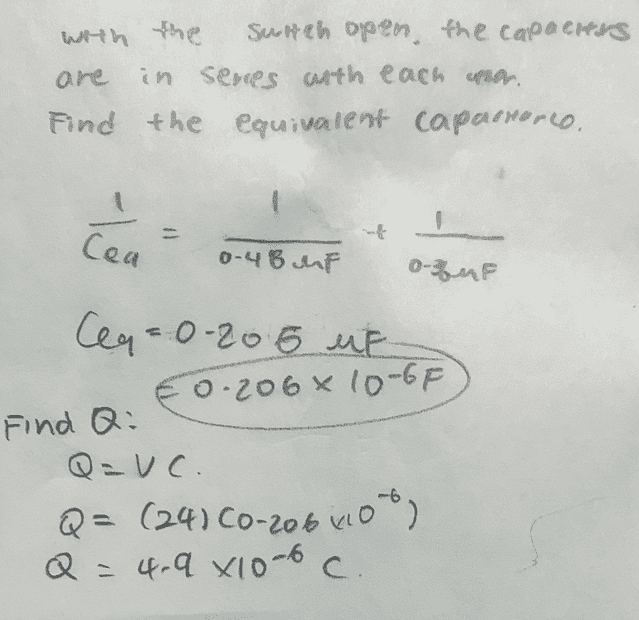 with the switch open, the capacitors
are in series with each
Find the equivalent capacitance.
1/Ceq = 1/0-48 μF + 1/μF
Ceq = 0-206 μF
= 0.206 × 10-6F
Find Q:
Q = VC.
Q = (24) (0-206 ×10-6)
Q = 4.9 ×10-6 C.